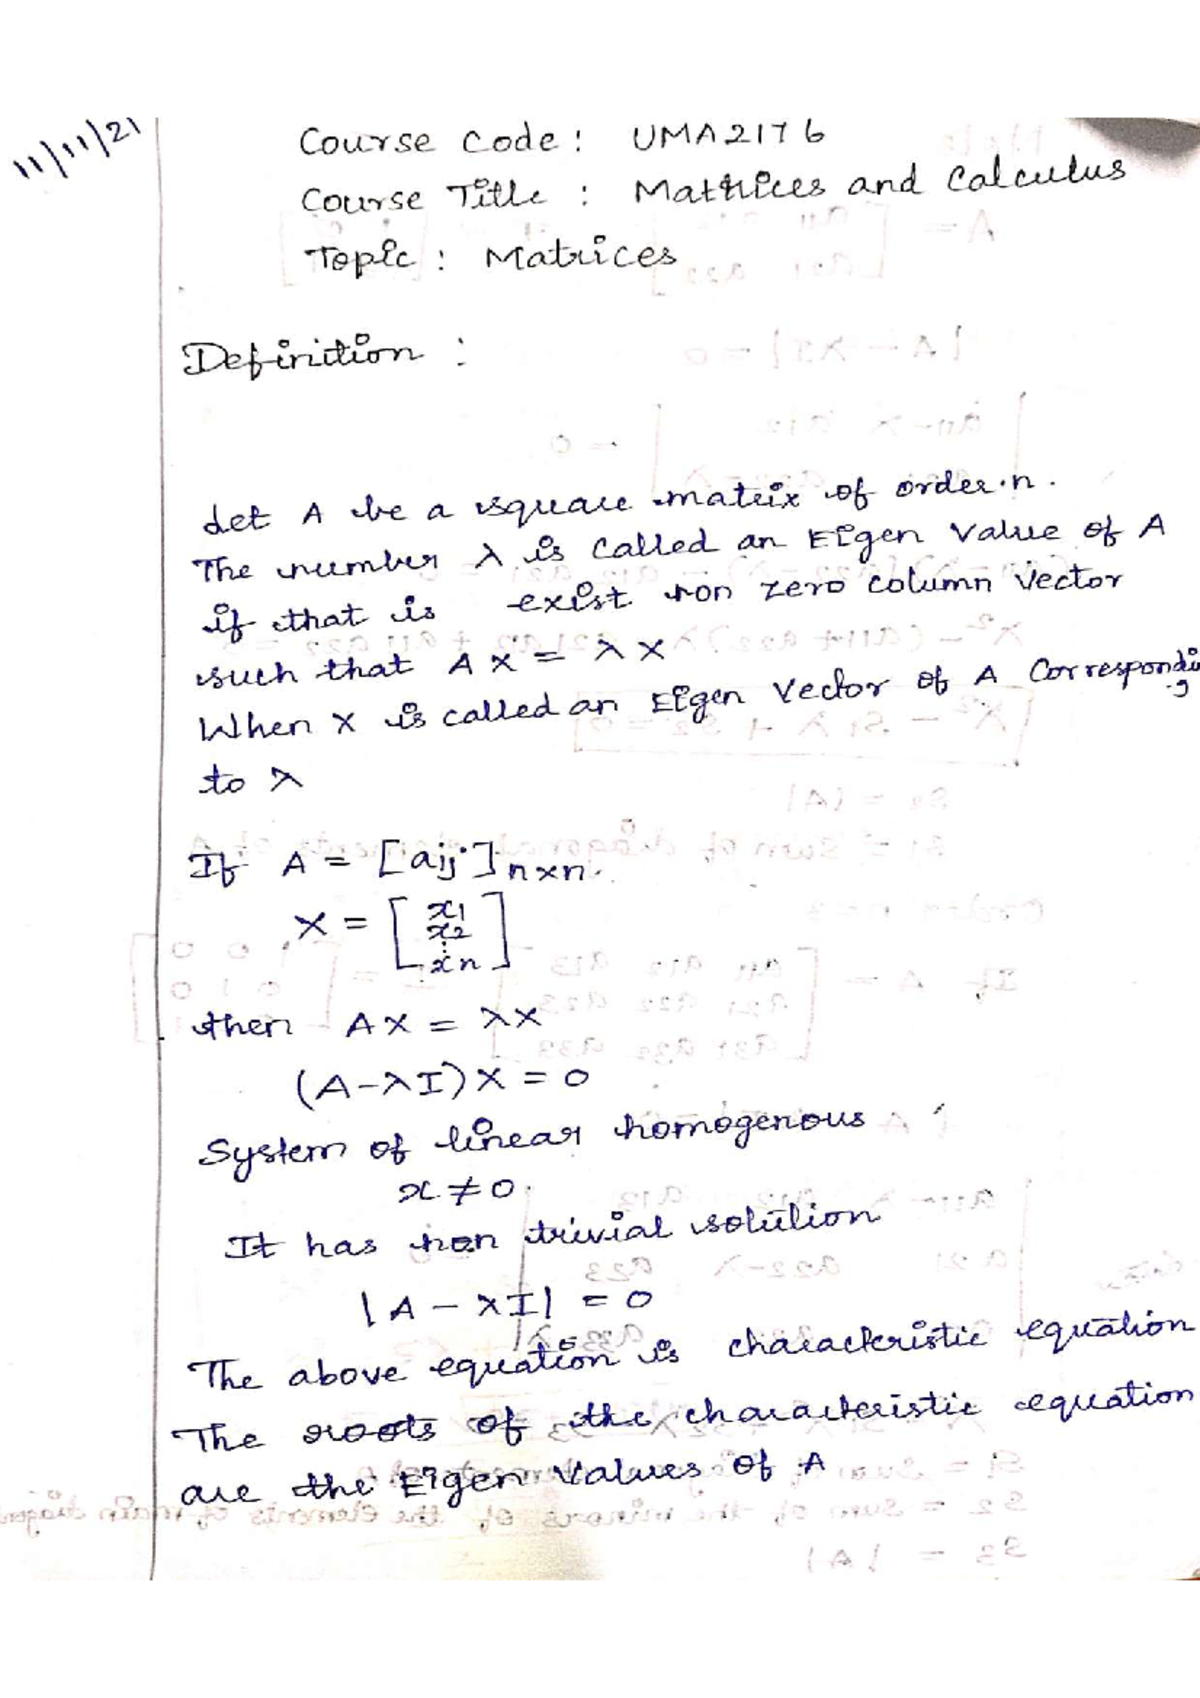 11/11/21
Course Code : UMA2176
Course Title : Matrices and Calculus
Topic : Matrices
Definition :
Let A be a square matrix of order n.
The number λ is called an Eigen Value of A
if that is exist non zero column Vector
such that AX = λX
When X is called an Eigen Vector of A Corresponding
to λ
If A = [aij]n×n.
X = [x1 x2 ⋮ xn]
then AX = λX
(A-λI)X = 0
System of linear homogenous
x ≠ 0.
It has non trivial solution
|A - λI| = 0
The above equation is characteristic equation
The roots of the characteristic equation
are the Eigen Values of A